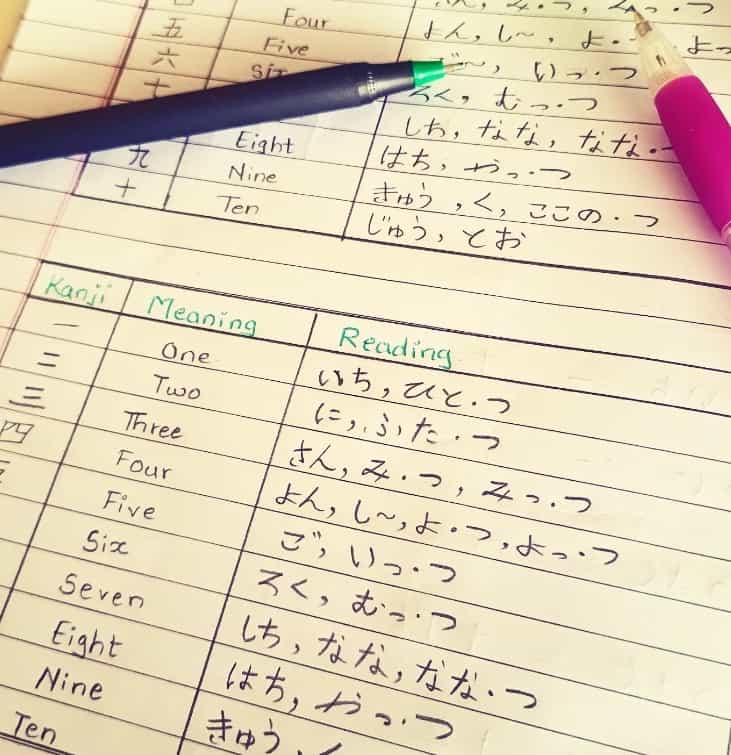 Four よん, し〜, よ・
五 Five いっ・つ
六 Six ろく, むっ・つ
しち, なな, なな・
Eight はち, やっ・つ
九 Nine きゅう , く, ここの・つ
十 Ten じゅう, とお
Kanji Meaning Reading
一 One いち, ひと・つ
二 Two に, ふた・つ
三 Three さん, み・つ, みっ・つ
四 Four よん, し〜, よ・つ, よっ・つ
Five ご, いっ・つ
Six ろく, むっ・つ
Seven しち, なな, なな・つ
Eight はち, やっ・つ
Nine きゅう,
Ten